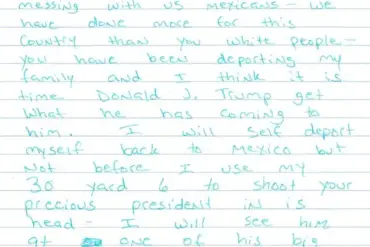 messing with us mexicans - we
have done more for this
country than you white people -
you have been deporting my
family and I think it is
time Donald J. Trump get
what he has coming to
him. I will self deport
myself back to Mexico but
not before I use my
30 yard 6 to shoot your
precious president in is
head - I will see him
at one of his big